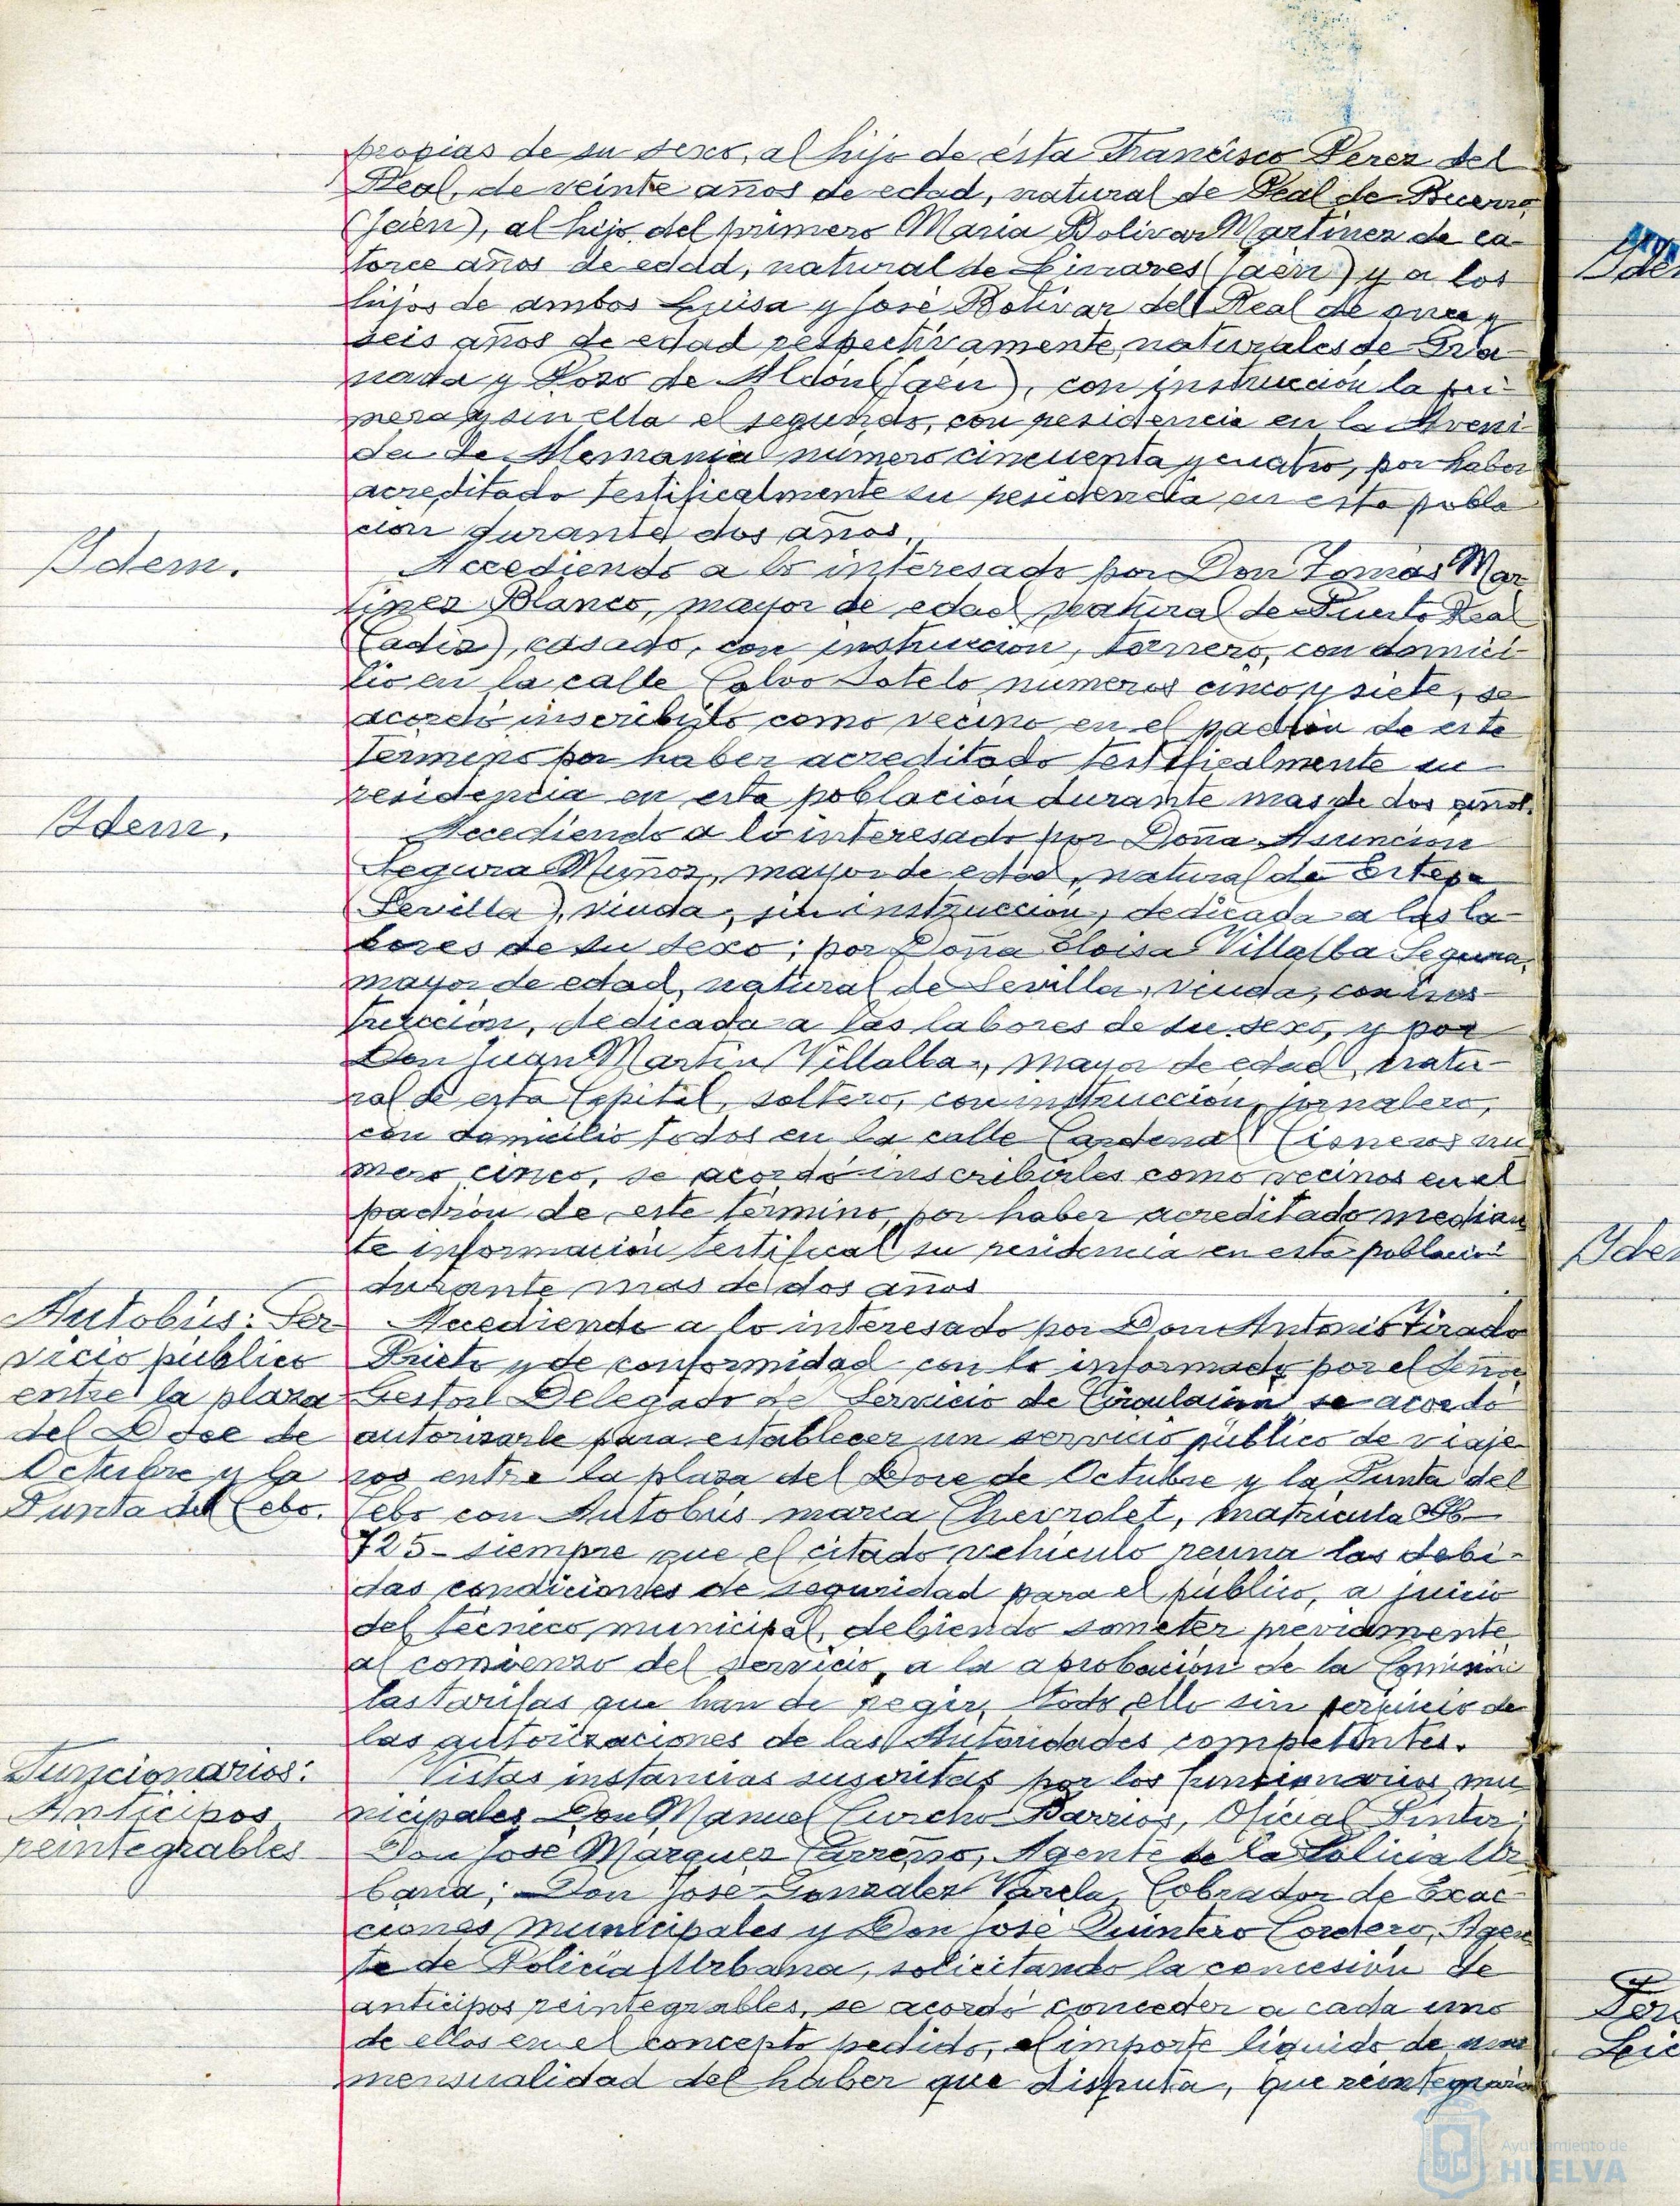 propias de su sexo, al hijo de ésta Francisco Perez del
Real, de veinte años de edad, natural de Peal de Becerro
(Jaén), al hijo del primero Maria Bolivar Martinez de ca-
torce años de edad, natural de Linares (Jaén) y a los
hijos de ambos Luisa y José Bolivar del Real de once y
seis años de edad respectivamente, naturales de Gra-
nada y Pozo de Alcón (Jaén), con instrucción la pri-
mera y sin ella el segundo, con residencia en la Aveni-
da de Alemania número cincuenta y cuatro, por haber
acreditado testificalmente su residencia en esta pobla-
ción durante dos años.
Idem.
Accediendo a lo interesado por Don Tomás Mar-
tinez Blanco, mayor de edad, natural de Puerto Real
(Cadiz), casado, con instrucción, tornero, con domici-
lio en la calle Calvo Sotelo números cinco y siete, se
acordó inscribirlo como vecino en el padrón de este
término por haber acreditado testificalmente su
residencia en esta población durante mas de dos años.
Idem.
Accediendo a lo interesado por Doña Asunción
Segura Muñoz, mayor de edad, natural de Estepa
(Sevilla), viuda, sin instrucción, dedicada a las la-
bores de su sexo; por Doña Eloisa Villalba Segura,
mayor de edad, natural de Sevilla, viuda, con ins-
trucción, dedicada a las labores de su sexo, y por
Don Juan Martin Villalba, mayor de edad, natu-
ral de esta Capital, soltero, con instrucción, jornalero,
con domicilio todos en la calle Cardenal Cisneros nu-
mero cinco, se acordó inscribirles como vecinos en el
padrón de este término, por haber acreditado median-
te información testifical su residencia en esta población
durante mas de dos años
Autobús: Ser-
vicio público
entre la plaza
del Doce de
Octubre y la
Punta del Sebo.
Accediendo a lo interesado por Don Antonio Tirado
Prieto y de conformidad con lo informado por el Señor
Gestor Delegado de Servicio de Circulación se acordó
autorizarle para establecer un servicio público de viaje-
ros entre la plaza del Doce de Octubre y la Punta del
Sebo con Autobús marca Chevrolet, matricula
725- siempre que el citado vehículo reuna las debi-
das condiciones de seguridad para el público, a juicio
del técnico municipal, debiendo someter previamente
al comienzo del servicio, a la aprobación de la Comisión
las tarifas que han de regir, todo ello sin perjuicio de
las autorizaciones de las Autoridades competentes.
Funcionarios:
Anticipos
reintegrables
Vistas instancias suscritas por los funcionarios mu-
nicipales Don Manuel Curcho Barrios, Oficial Pintor;
Don José Marquez Carreño, Agente de la Policia Ur-
bana; Don José Gonzalez Varela, Cobrador de Exac-
ciones municipales y Don José Quintero Cordero, Agen-
te de Policia Urbana, solicitando la concesión de
anticipos reintegrables, se acordó conceder a cada uno
de ellos en el concepto pedido, el importe líquido de una
mensualidad del haber que disfruta, que reintegrarán
Ayuntamiento de
HUELVA